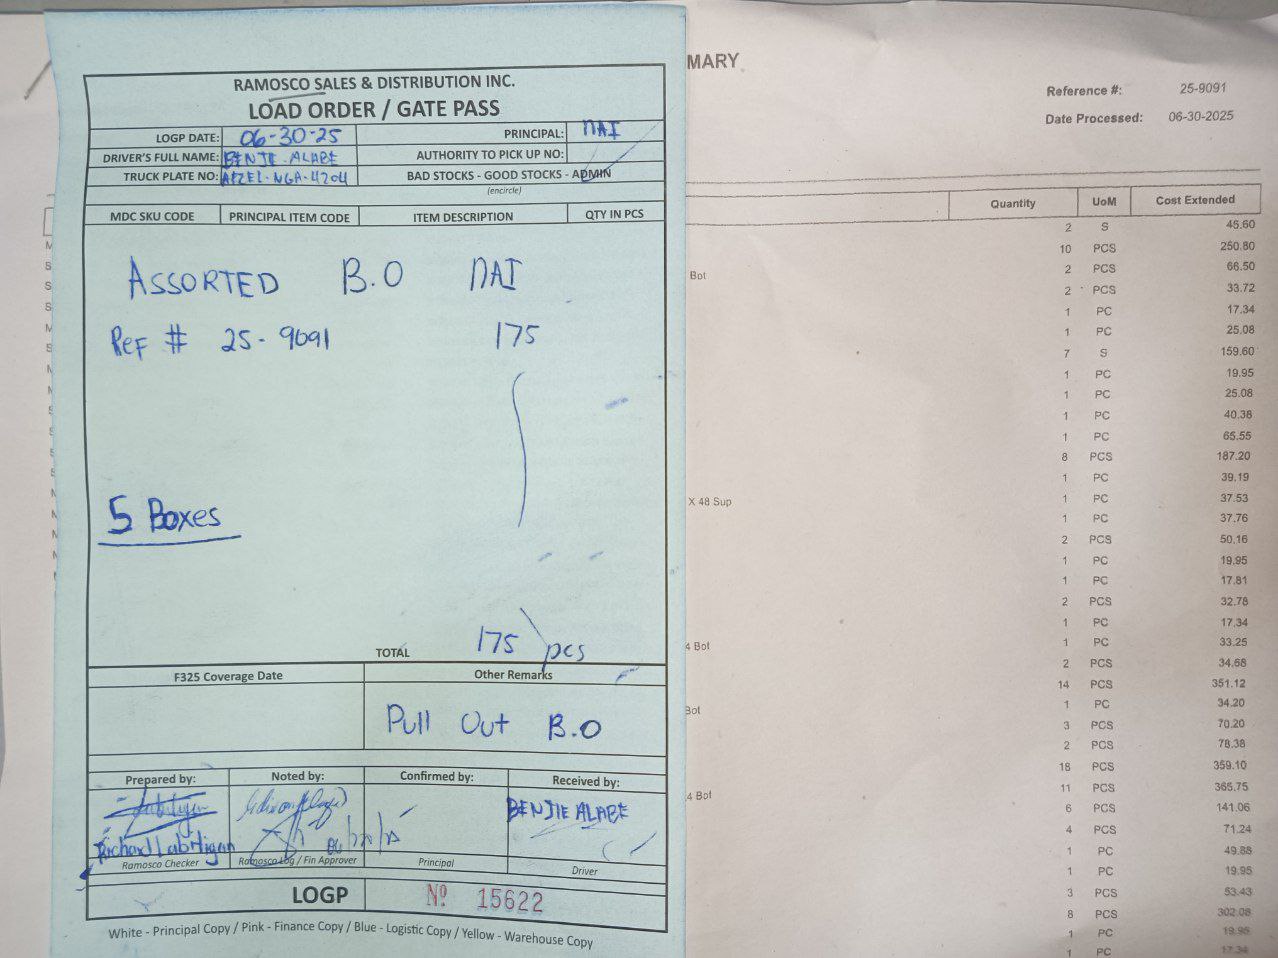 RAMOSCO SALES & DISTRIBUTION INC.
LOAD ORDER / GATE PASS
LOGP DATE: 06-30-25 PRINCIPAL: NAI
DRIVER'S FULL NAME: BENJIE ALABE AUTHORITY TO PICK UP NO:
TRUCK PLATE NO: NGA-4204 BAD STOCKS - GOOD STOCKS - ADMIN
(encircle)
MDC SKU CODE PRINCIPAL ITEM CODE ITEM DESCRIPTION QTY IN PCS
ASSORTED B.O NAI
Ref # 25-9091 175
5 Boxes
TOTAL 175 pcs
F325 Coverage Date Other Remarks
Pull Out B.O
Prepared by: Noted by: Confirmed by: Received by:
BENJIE ALABE
Richard Labitigan
Ramosco Checker Ramosco Log / Fin Approver Principal Driver
LOGP Nº 15622
White - Principal Copy / Pink - Finance Copy / Blue - Logistic Copy / Yellow - Warehouse Copy
MARY
Reference #: 25-9091
Date Processed: 06-30-2025
Quantity UoM Cost Extended
2 S 45.60
10 PCS 250.80
Bot 2 PCS 66.50
2 PCS 33.72
1 PC 17.34
1 PC 25.08
7 S 159.60
1 PC 19.95
1 PC 25.08
1 PC 40.38
1 PC 65.55
8 PCS 187.20
1 PC 39.19
X 48 Sup 1 PC 37.53
1 PC 37.76
2 PCS 50.16
1 PC 19.95
1 PC 17.81
2 PCS 32.78
1 PC 17.34
4 Bot 1 PC 33.25
2 PCS 34.68
14 PCS 351.12
Bot 1 PC 34.20
3 PCS 70.20
2 PCS 78.38
18 PCS 359.10
4 Bot 11 PCS 365.75
6 PCS 141.06
4 PCS 71.24
1 PC 49.88
1 PC 19.95
3 PCS 53.43
8 PCS 302.08
1 PC 19.95
1 PC 17.34